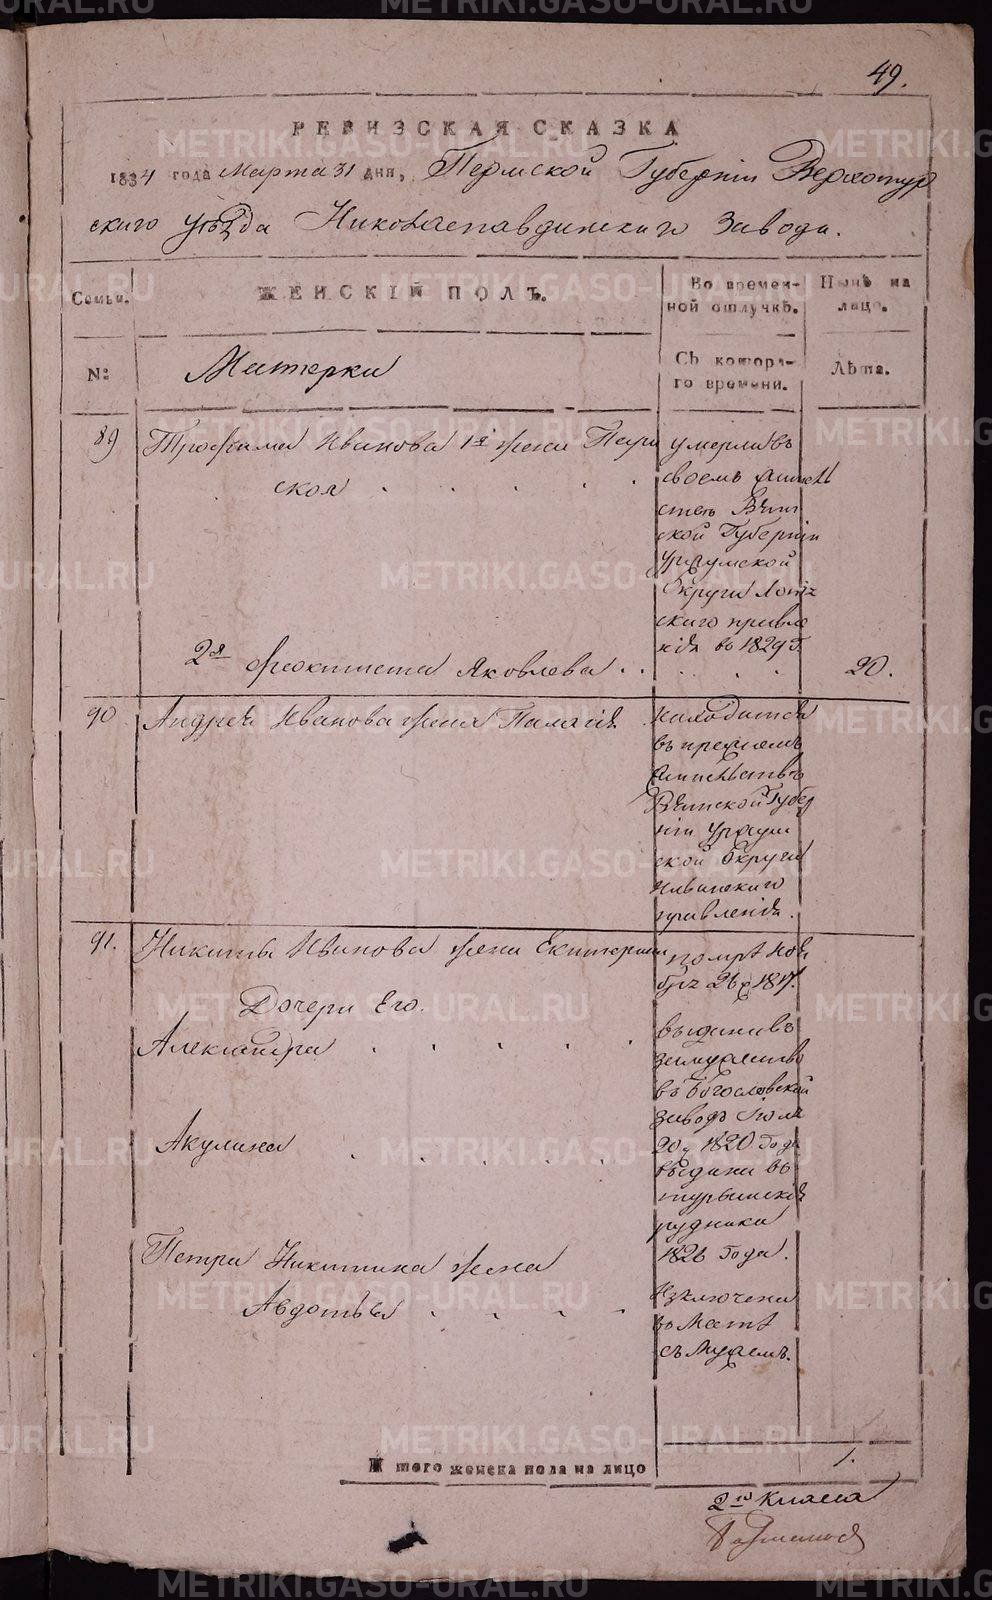 49.
РЕВИЗСКАЯ СКАЗКА
1834 года Марта 31 дня, Пермской Губерніи Верхотур
скаго уѣзда Николаепавдинскаго Завода.
Семьи. ЖЕНСКІЙ ПОЛЪ. Во времен- Нынѣ на
ной отлучкѣ. лицо.
№ Мастерки Съ котора- Лѣта.
го времени.
89 Трофима Иванова 1я жена Пара умерла въ
скол своемъ
Вят
ской Губерніи
Уржумской
Округи
скаго правле
нія въ 1829 г.
2я Феоктиста Яковлева 20.
90 Андрея Иванова жена Палагія находится
въ прежнемъ
жительствѣ
Вятской Губер
ніи Уржум
ской Округи
правленія.
91. Никиты Иванова жена Екатерина помре Ноя
бря 26 1817.
Дочери Его.
Александра выдана въ
замужство
въ Богословской
заводъ Іюля
20 1820 года
Акулина выдана въ
турьинскія
рудники
1826 года.
Петра Никитина жена
Авдотья Изключена
въ Мѣстѣ
съ Мужемъ.
Итого женска пола на лицо 1.
2го класса
METRIKI.GASO-URAL.RU